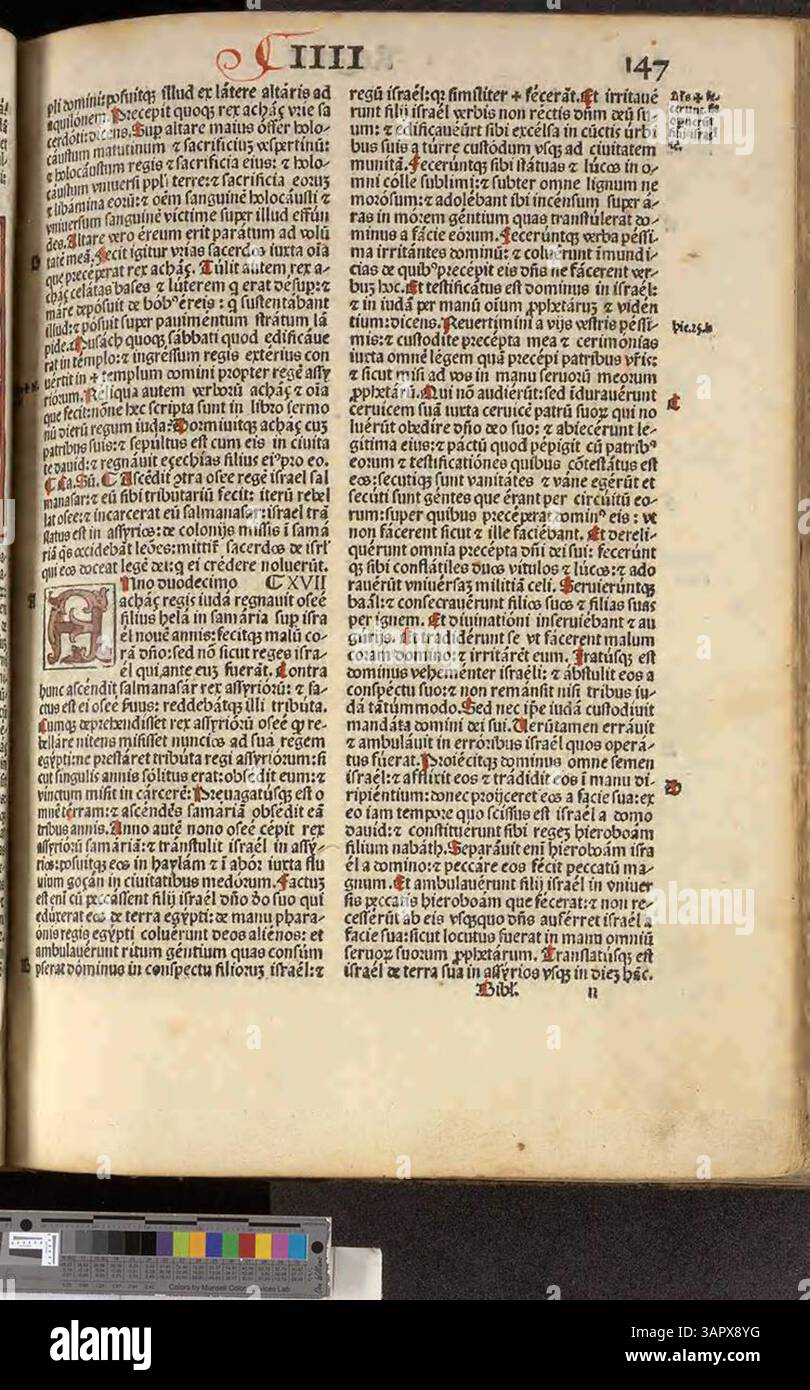 IIII
147
pli domini: posuitqȝ illud ex látere altáris ad
aquilonem. Precepit quoqȝ rex acháȝ vrie sa
cerdóti: dicens. Sup altare maius óffer holo-
cáustum matutinum ⁊ sacrificiuȝ vespertinũ:
⁊ holocáustum regis ⁊ sacrificia eius: ⁊ holo-
cáustum vniuersi ppĺi terre: ⁊ sacrificia eoruȝ
⁊ libámina eorũ: ⁊ oẽm sanguinẽ holocáusti ⁊
vniuersum sanguinẽ victime super illud effũn
des. Altare vero éreum erit parátum ad volũ
tatẽ meã. Fecit igitur vrias sacerdos iuxta oĩa
que precéperat rex acháȝ. Tulit autem rex a-
cháȝ celátas bases ⁊ lúterem q̃ erat désup: ⁊
mare depósuit de bób⁹ éreis: q̃ sustentábant
illud: ⁊ pósuit super pauiméntum strátum lá
pide. Musách quoqȝ sábbati quod edificáue
rat in templo: ⁊ ingressum regis extérius con
uértit in templum domini propter regẽ assy
riórum. Réliqua autem verborũ acháȝ ⁊ oĩa
que fecit: nõne hec scripta sunt in libro sermo
nũ dierũ regum iuda? Dormiuitqȝ acháȝ cuȝ
patribus suis: ⁊ sepúltus est cum eis in ciuita
te dauid: ⁊ regnáuit eȝechias filius ei⁹ pro eo.
Ca. Sũ. Ascédit cõtra osee regẽ israel sal
manasar: ⁊ eũ sibi tributariũ fecit: iterũ rebel
lat osee: ⁊ incarcerat eũ salmanasar: israel trã
slatus est in assyrios: de colonijs missis ĩ samã
riã q̃s occidebãt leões: mittit̃ sacerdos de isrl̃
qui eos doceat legẽ dei: q̃ ei crédere noluerũt.
Anno duodecimo XVII
acháȝ regis iudá regnauit oseé
filius hela in samária sup isra
él nouẽ annis: fecitqȝ malũ co-
rã dño: sed nõ sicut reges isra-
él qui ante euȝ fuerãt. Contra
hunc ascéndit salmanasár rex assyriórũ: ⁊ fa-
ctus est ei oseé seruus: reddebátqȝ illi tribúta.
Cumqȝ deprehendisset rex assyriórũ oseé qp re-
belláre nitens misisset nuncios ad suá regem
egýpti: ne prestáret tribúta regi assyriorum: si
cut singulis annis sólitus erat: obsédit eum: ⁊
vinctum misit in cárcerẽ: Peruagatúsqȝ est o
mnẽ térram: ⁊ ascéndẽs samáriã obsédit eã
tribus annis. Anno autẽ nono oseé cépit rex
assyriórũ samáriã: ⁊ trãnstulit israél in assý-
rios: posuitqȝ eos in haylám ⁊ ĩ abór iuxta flu
uium goçán in ciuitatibus medórum. Factuȝ
est enĩ cũ peccássent filij israél dño do suo qui
edúxerat eos de terra egýpti: de manu phara-
ónis regis egýpti coluérunt deos aliénos: et
ambulauérunt ritum géntium quas consúm
pserat dóminus in conspectu filioruȝ israél: ⁊
regũ israél: qȝ similiter fécerãt. Et irritaué
runt filij israél verbis non rectis dñm deũ su-
um: ⁊ edificauérũt sibi excélsa in cũctis úrbi
bus suis a turre custódum vsqȝ ad ciuitatem
munitã. Feceruntqȝ sibi státuas ⁊ lúcos in o-
mni cólle sublimi: ⁊ subter omne lignum ne
morósum: ⁊ adolébant ibi incénsum super a-
ras in mórem géntium quas transtúlerat do-
minus a fácie eórum. Fecerúntqȝ verba péssi-
ma irritántes dominũ: ⁊ coluérunt ĩmundi-
cias de quib⁹ precépit eis dñs ne fácerent ver-
buȝ hoc. Et testificátus est dominus in israél:
⁊ in iudá per manũ oĩum ꝓphetáruȝ ⁊ viden
tium: dicens. Reuertímini a vijs vestris péssi-
mis: ⁊ custodite precépta mea ⁊ cerimónias
iuxta omnẽ légem quã precépi patribus vr̃is:
⁊ sicut misi ad vos in manu seruorũ meorum
ꝓphetárũ. Qui nõ audiérũt: sed ĩdurauérunt
ceruicem suã iuxta ceruicẽ patrũ suoꝝ qui no
luérũt obedire dño deo suo: ⁊ abiecérunt le-
gitima eius: ⁊ páctũ quod pépigit cũ patrib⁹
eorum ⁊ testificatiónes quibus cõtestátus est
eos: secutiqȝ sunt vanitátes ⁊ váne egérũt et
secúti sunt gentes que érant per circúitũ eo-
rum: super quibus precéperat domin⁹ eis: vt
non fácerent sicut ⁊ ille faciébant. Et dereli-
quérunt omnia precépta dñi dei sui: fecerúnt
qȝ sibi conflátiles duos vitulos ⁊ lúcos: ⁊ ado
rauérũt vniuersaȝ militiã celi. Seruierúntqȝ
baál: ⁊ consecrauérunt filios suos ⁊ filias suas
per ignem. Et diuinatióni inseruiébant ⁊ au
gurijs. Et tradidérunt se vt fácerent malum
coram domino: ⁊ irritárẽt eum. Iratúsqȝ est
dominus veheménter israéli: ⁊ abstulit eos a
conspéctu suo: ⁊ non remánsit nisi tribus iu-
dá tãtúmmodo. Sed nec ip̃e iudá custodiuit
mandáta domini dei sui. Uerútamen erráuit
⁊ ambuláuit in erróribus israél quos operá-
tus fúerat. Proiécitqȝ dóminus omne semen
israél: ⁊ afflixit eos ⁊ trádidit eos ĩ manu di-
ripiéntium: donec proijceret eos a facie sua: ex
eo iam tempore quo scissus est israél a domo
dauid: ⁊ constituérunt sibi regeȝ hieroboám
filium nabáth. Separáuit enĩ hieroboám isra
él a domino: ⁊ peccáre eos fécit peccátũ ma-
gnum. Et ambulauérunt filij israél in vniuer
sis peccatis hieroboám que fécerat: ⁊ non re-
cessérũt ab eis vsqȝquo dñs auférret israél a
facie sua: sicut locutus fuerat in manu omniũ
seruoꝝ suorum ꝓphetárum. Translatúsqȝ est
israél de terra sua in assýrios vsqȝ in dieȝ hãc.
Bibl. n
Hie. 25. b
C
D
A
B
alamy
Image ID: 3APX8YG
www.alamy.com